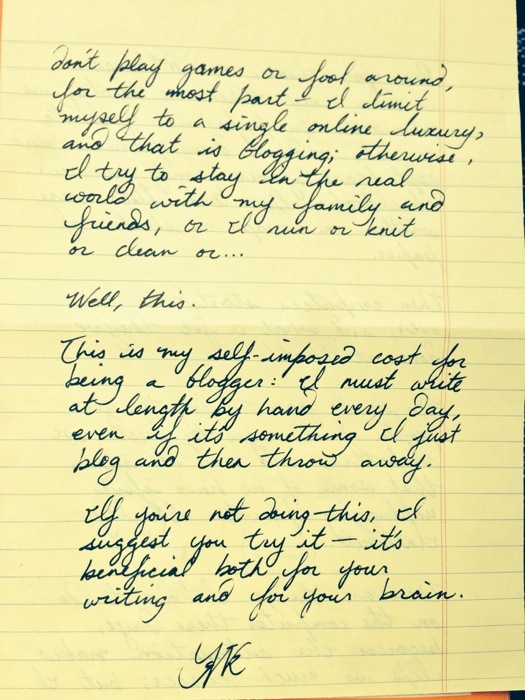 don't play games or fool around,
for the most part – I limit
myself to a single online luxury,
and that is blogging; otherwise,
I try to stay in the real
world with my family and
friends, or I run or knit
or clean or...
Well, this.
This is my self-imposed cost for
being a blogger: I must write
at length by hand every day,
even if it's something I just
blog and then throw away.
If you're not doing this, I
suggest you try it – it's
beneficial both for your
writing and for your brain.